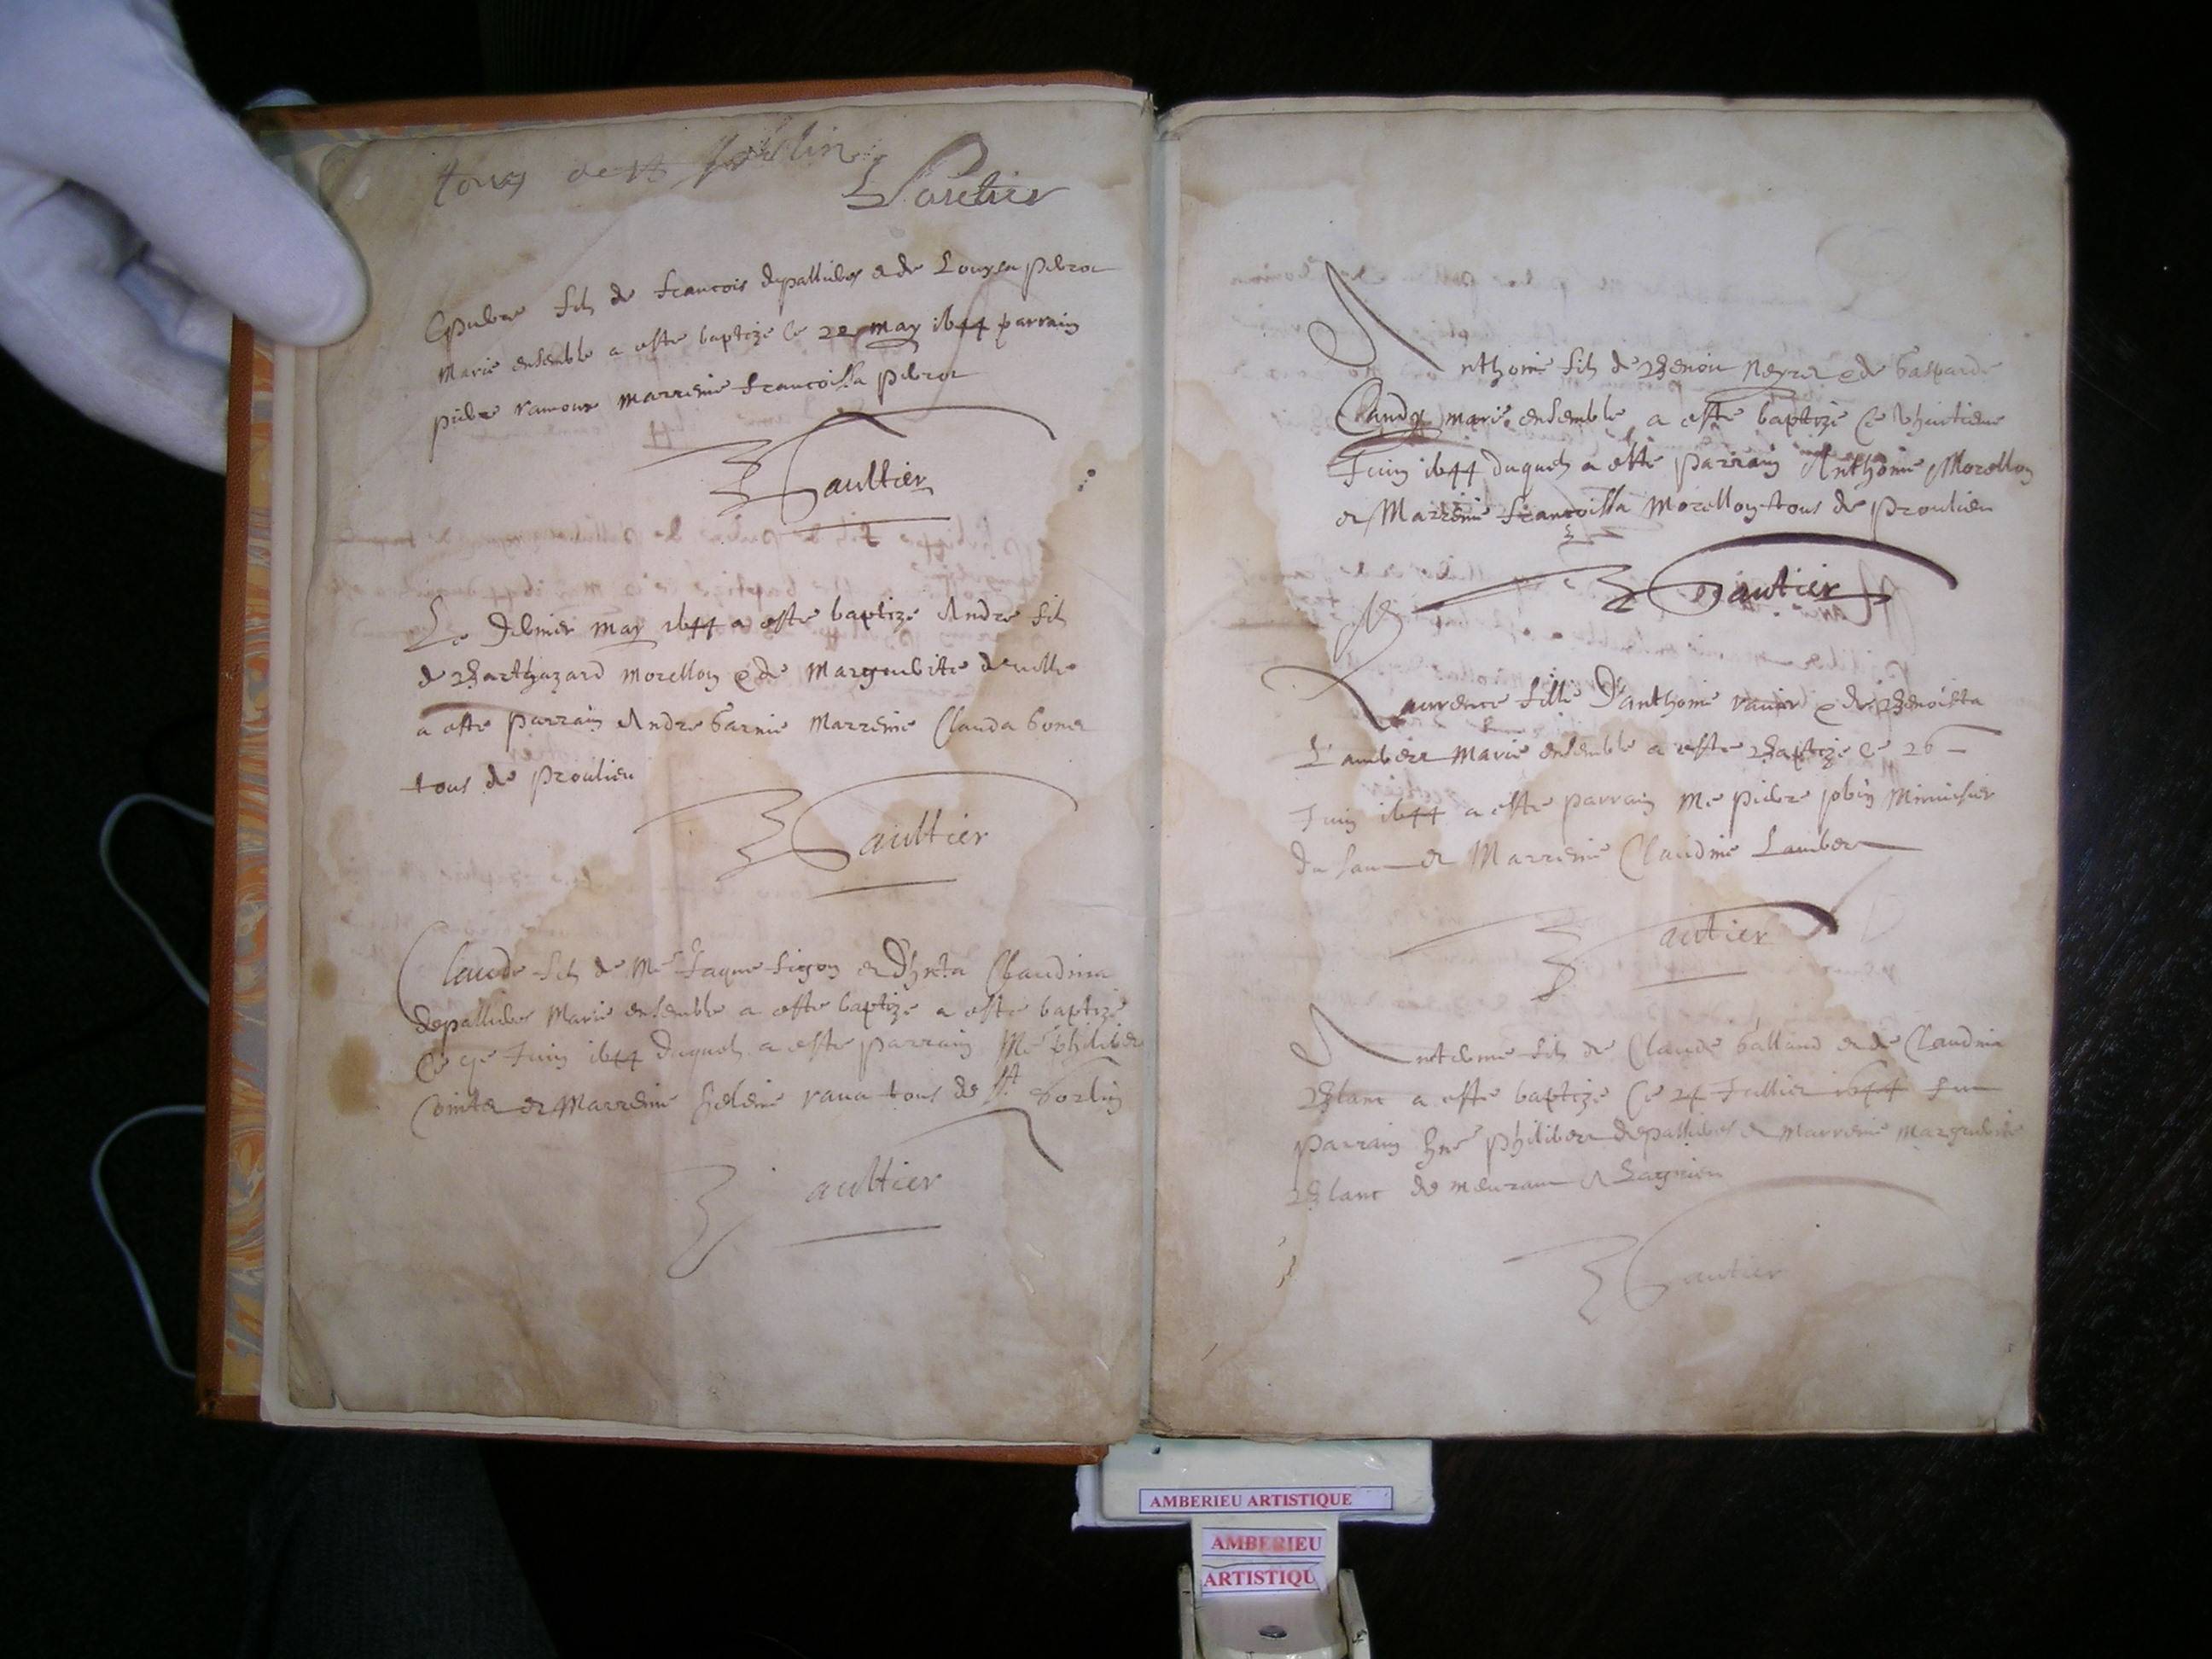 tous de St Sorlin
Gaultier
Pierre fils de Francois depallieres et de Louysa
Marie ensemble a este baptize ce 22 may 1644 parrain
pierre ramoux marrenie francoissa
Gaultier
Le dernier may 1644 a este baptize Andre fils
de Barthazard morellon et de Marguerite deville
a este parrain Andre Garnie Marrenie Clauda
tous de proulieu
Gaultier
Claude fils de Me Jaque figon et d'hnta Claudina
depallieres Marie ensemble a este baptize a este baptize
ce Juin 1644 duquel a este parrain Me philiber
et Marrenie heleine rana tous de St Sorlin
Gaultier
Anthoine fils de Benoit Neyret et de Gasparde
Claudy marie ensemble a este baptize ce
Juin 1644 duquel a este parrain Anthoine Morellon
et Marrenie francoissa Morellon tous de proulieu
Gautier
Laurence fille D'anthoine ravier et de Benoista
Lambert Marie ensemble a este Baptize ce 26
Juin 1644 a este parrain Me pierre jobin
du et Marrenie Claudine Lambert
Gautier
Antelme fils de Claude Galland et de Claudina
Blanc a este baptize ce 24 Jullier 1644 fut
parrain hne philibert depallieres et marrenie marguerite
Blanc de
Gautier
AMBERIEU ARTISTIQUE
AMBERIEU
ARTISTIQU